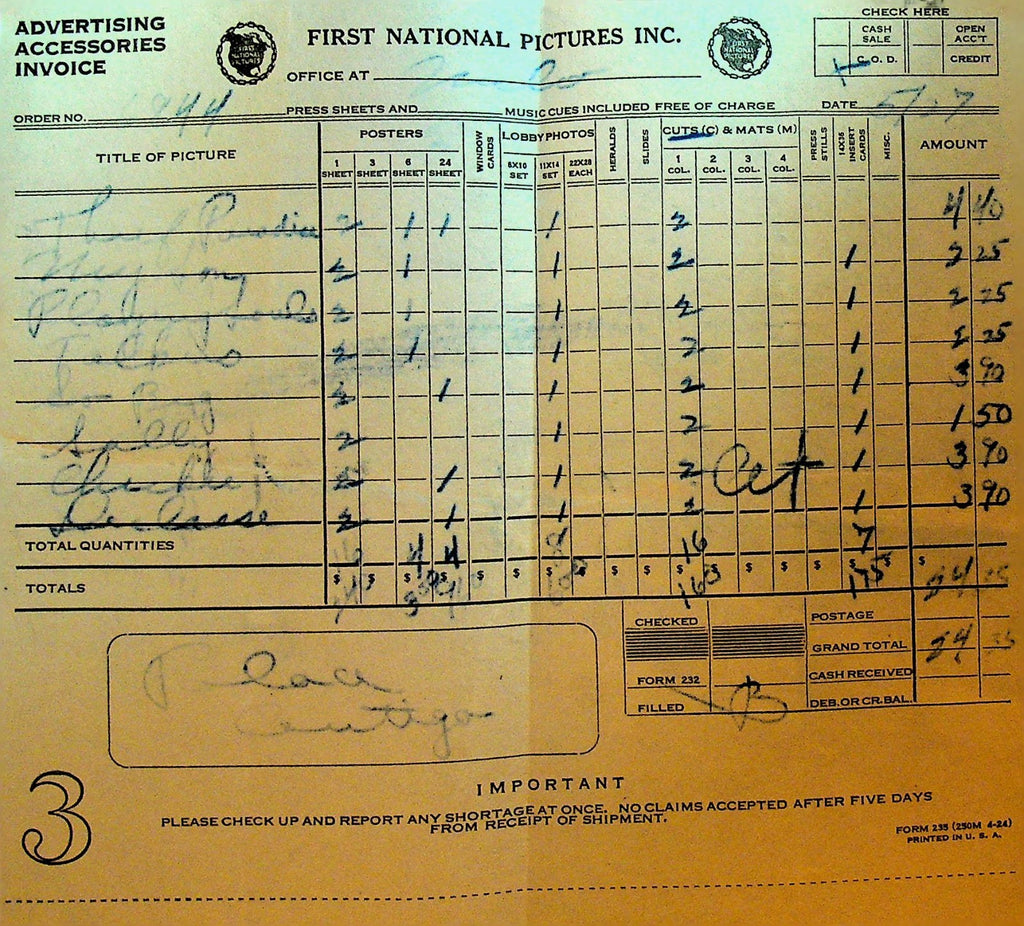 ADVERTISING
ACCESSORIES
INVOICE
FIRST NATIONAL PICTURES INC.
OFFICE AT
CHECK HERE
CASH SALE
OPEN ACC'T
C. O. D.
CREDIT
ORDER NO. 944
PRESS SHEETS AND MUSIC CUES INCLUDED FREE OF CHARGE
DATE
TITLE OF PICTURE
POSTERS
1 SHEET 3 SHEET 6 SHEET 24 SHEET
WINDOW CARDS
LOBBY PHOTOS
8X10 SET 11X14 SET 22X28 EACH
HERALDS
SLIDES
CUTS (C) & MATS (M)
1 COL. 2 COL. 3 COL. 4 COL.
PRESS STILLS
14X36 INSERT CARDS
MISC.
AMOUNT
2 1 1 1 2 4 40
2 1 1 2 1 2 25
2 1 1 2 1 2 25
2 1 1 2 1 2 25
2 1 1 2 1 3 90
Sally 2 1 2 1 1 50
2 1 1 2 Cut 1 3 90
2 1 1 2 1 3 90
TOTAL QUANTITIES 16 4 4 8 16 7
TOTALS $ $ $ $ $ $ $ $ $ $ $ $ $ $ $ 24 35
CHECKED
POSTAGE
GRAND TOTAL 24 35
FORM 232
CASH RECEIVED
FILLED B
DEB. OR CR. BAL.
Palace
3
IMPORTANT
PLEASE CHECK UP AND REPORT ANY SHORTAGE AT ONCE. NO CLAIMS ACCEPTED AFTER FIVE DAYS
FROM RECEIPT OF SHIPMENT.
FORM 235 (250M 4-24)
PRINTED IN U. S. A.